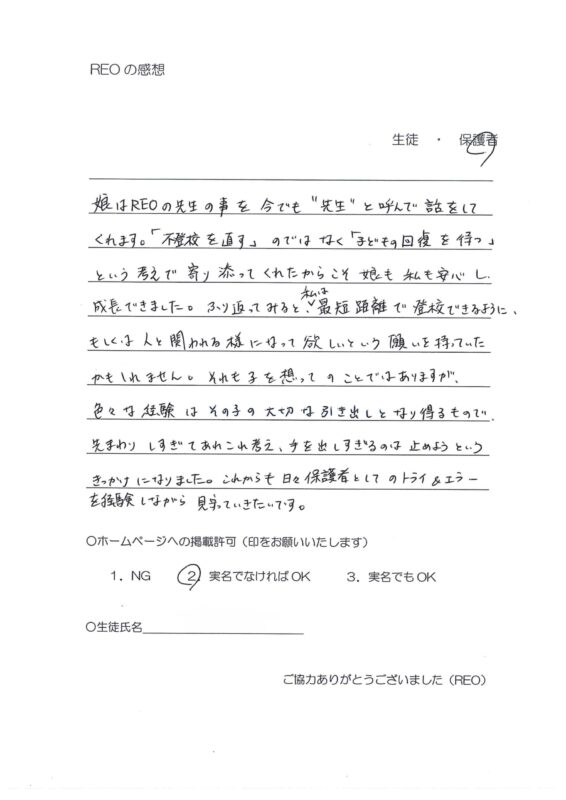 REOの感想
生徒 ・ 保護者
娘はREOの先生の事を今でも"先生"と呼んで話をして
くれます。「不登校を直す」のではなく「子どもの回復を待つ」
という考えで寄り添ってくれたからこそ娘も私も安心し
成長できました。ふり返ってみると、私は最短距離で登校できるように、
もしくは人と関われる様になって欲しいという願いを持っていた
かもしれません。それも子を想ってのことではありますが、
色々な経験はその子の大切な引き出しとなり得るもので、
先まわりしすぎてあれこれ考え、手を出しすぎるのは止めようという
きっかけになりました。これからも日々保護者としてのトライ&エラー
を経験しながら見守っていきたいです。
○ホームページへの掲載許可(印をお願いいたします)
1.NG 2.実名でなければOK 3.実名でもOK
○生徒氏名
ご協力ありがとうございました(REO)